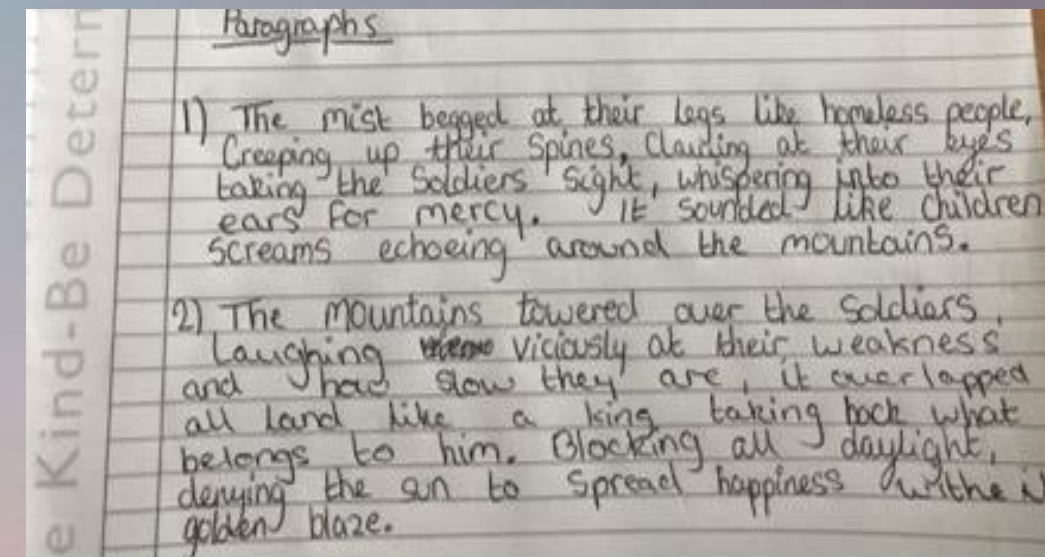 e Kind-Be Deterr
Paragraphs
1) The mist begged at their legs like homeless people,
Creeping up their Spines, Clawing at their eyes
taking the Soldiers sight, whispering into their
ears for mercy. It sounded like children
screams echoeing around the mountains.
2) The mountains towered over the Soldiers,
Laughing viciously at their weakness
and how slow they are, it overlapped
all land like a king taking back what
belongs to him. Blocking all daylight,
denying the sun to spread happiness
golden blaze.